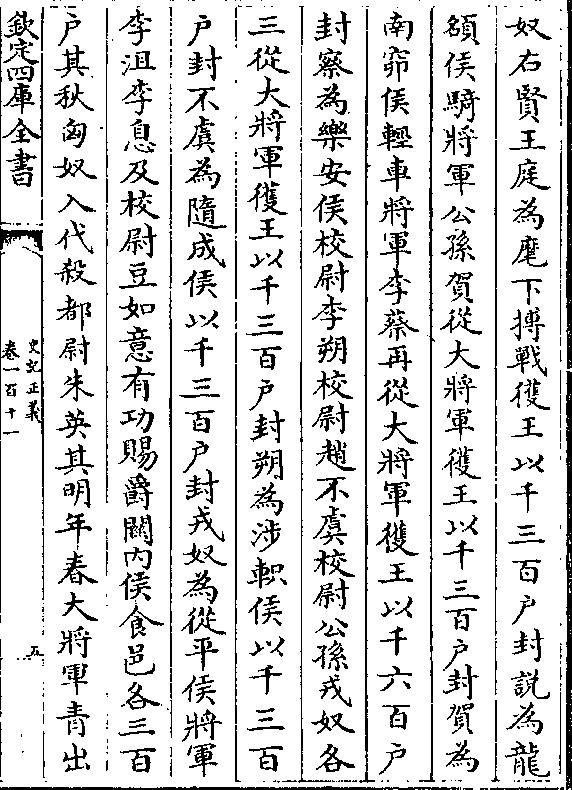 奴右賢王庭為麾下搏戰獲王以千三百户封説為龍
頟侯騎將軍公孫賀從大將軍獲王以千三百户封賀為
南窌侯輕車將軍李蔡再從大將軍獲王以千六百户
封蔡為樂安侯校尉李朔校尉趙不虞校尉公孫戎奴各
三從大將軍獲王以千三百户封朔為涉軹侯以千三百
户封不虞為隨成侯以千三百户封戎奴為從平侯將軍
李沮李息及校尉豆如意有功賜爵關内侯食邑各三百
户其秋匈奴入代殺都尉朱英其明年春大將軍青出
欽定四庫全書
史記正義
卷一百十一
五